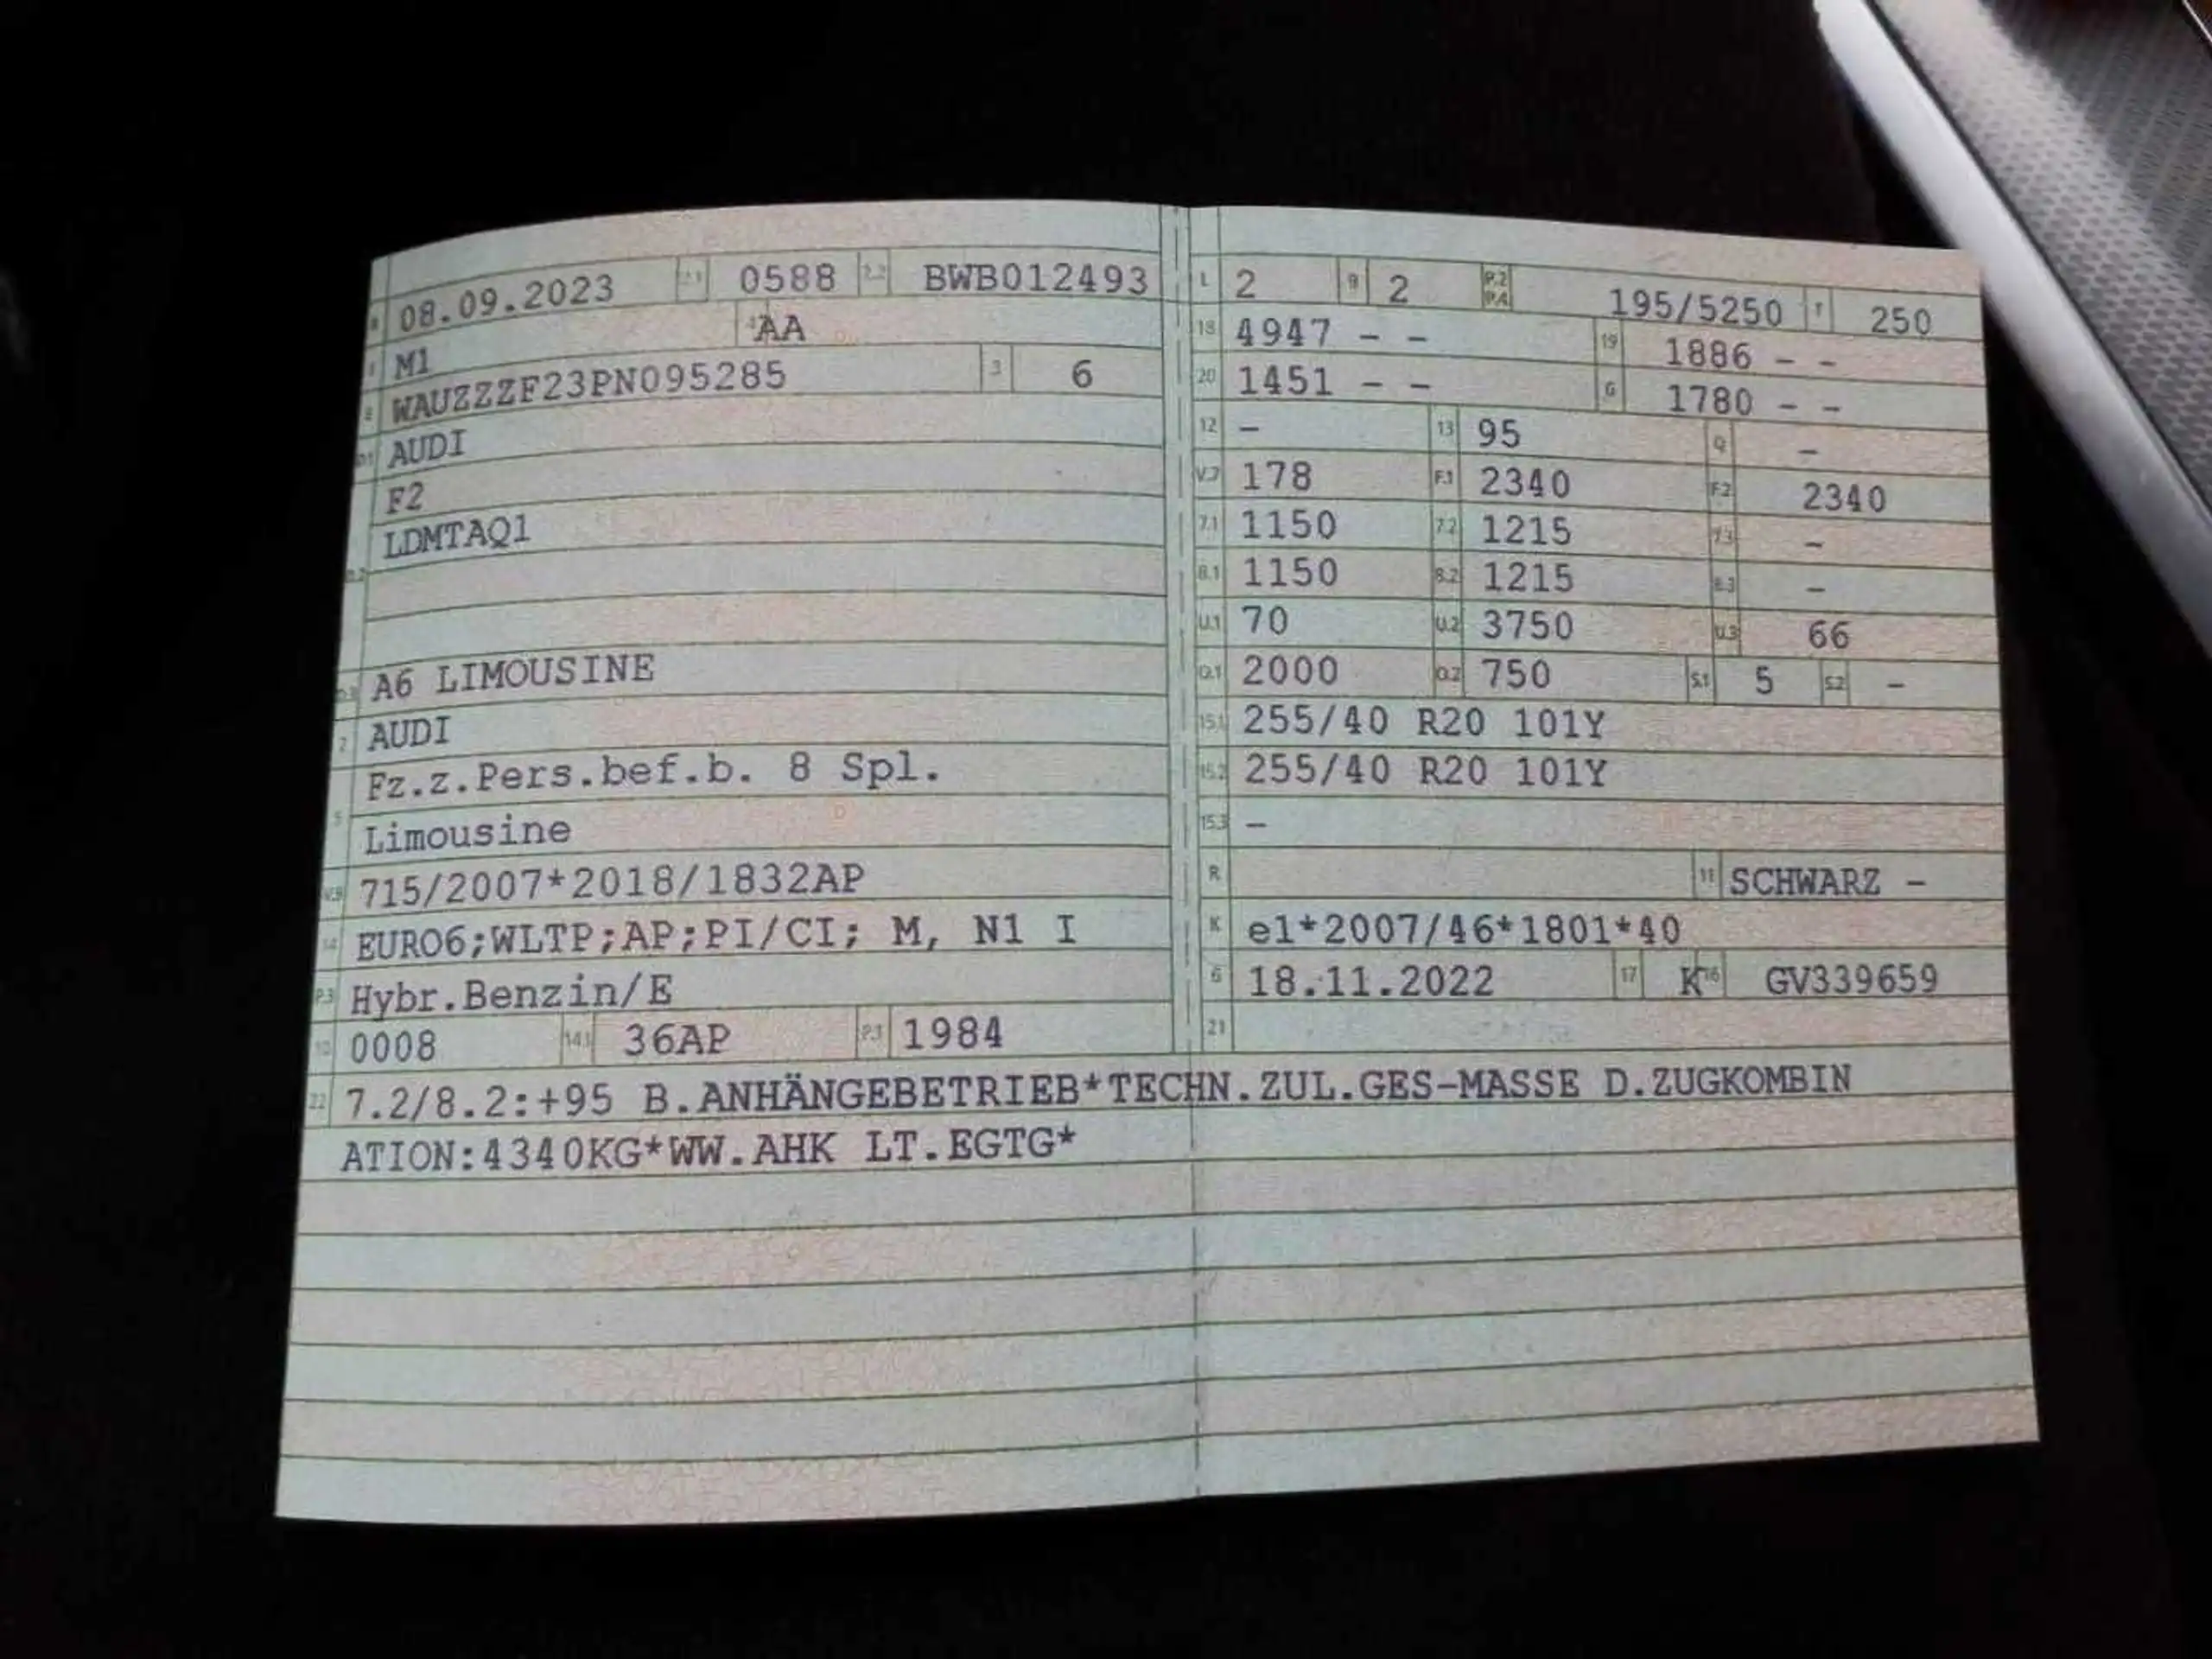 B 08.09.2023 2.1 0588 2.2 BWB012493
J M1 4 AA
E WAUZZZF23PN095285 3 6
D.1 AUDI
F2
D.2 LDMTAQ1
D.3 A6 LIMOUSINE
2 AUDI
5 Fz.z.Pers.bef.b. 8 Spl.
Limousine
V.9 715/2007*2018/1832AP
14 EURO6;WLTP;AP;PI/CI; M, N1 I
P.3 Hybr.Benzin/E
10 0008 14.1 36AP P.1 1984
L 2 9 2 P.2 P.4 195/5250 T 250
18 4947 – – 19 1886 – –
20 1451 – – G 1780 – –
12 – 13 95 Q –
V.7 178 F.1 2340 F.2 2340
7.1 1150 7.2 1215 7.3 –
8.1 1150 8.2 1215 8.3 –
U.1 70 U.2 3750 U.3 66
O.1 2000 O.2 750 S.1 5 S.2 –
15.1 255/40 R20 101Y
15.2 255/40 R20 101Y
15.3 –
R 11 SCHWARZ –
K e1*2007/46*1801*40
6 18.11.2022 17 K 16 GV339659
21
22 7.2/8.2:+95 B.ANHÄNGEBETRIEB*TECHN.ZUL.GES-MASSE D.ZUGKOMBIN
ATION:4340KG*WW.AHK LT.EGTG*